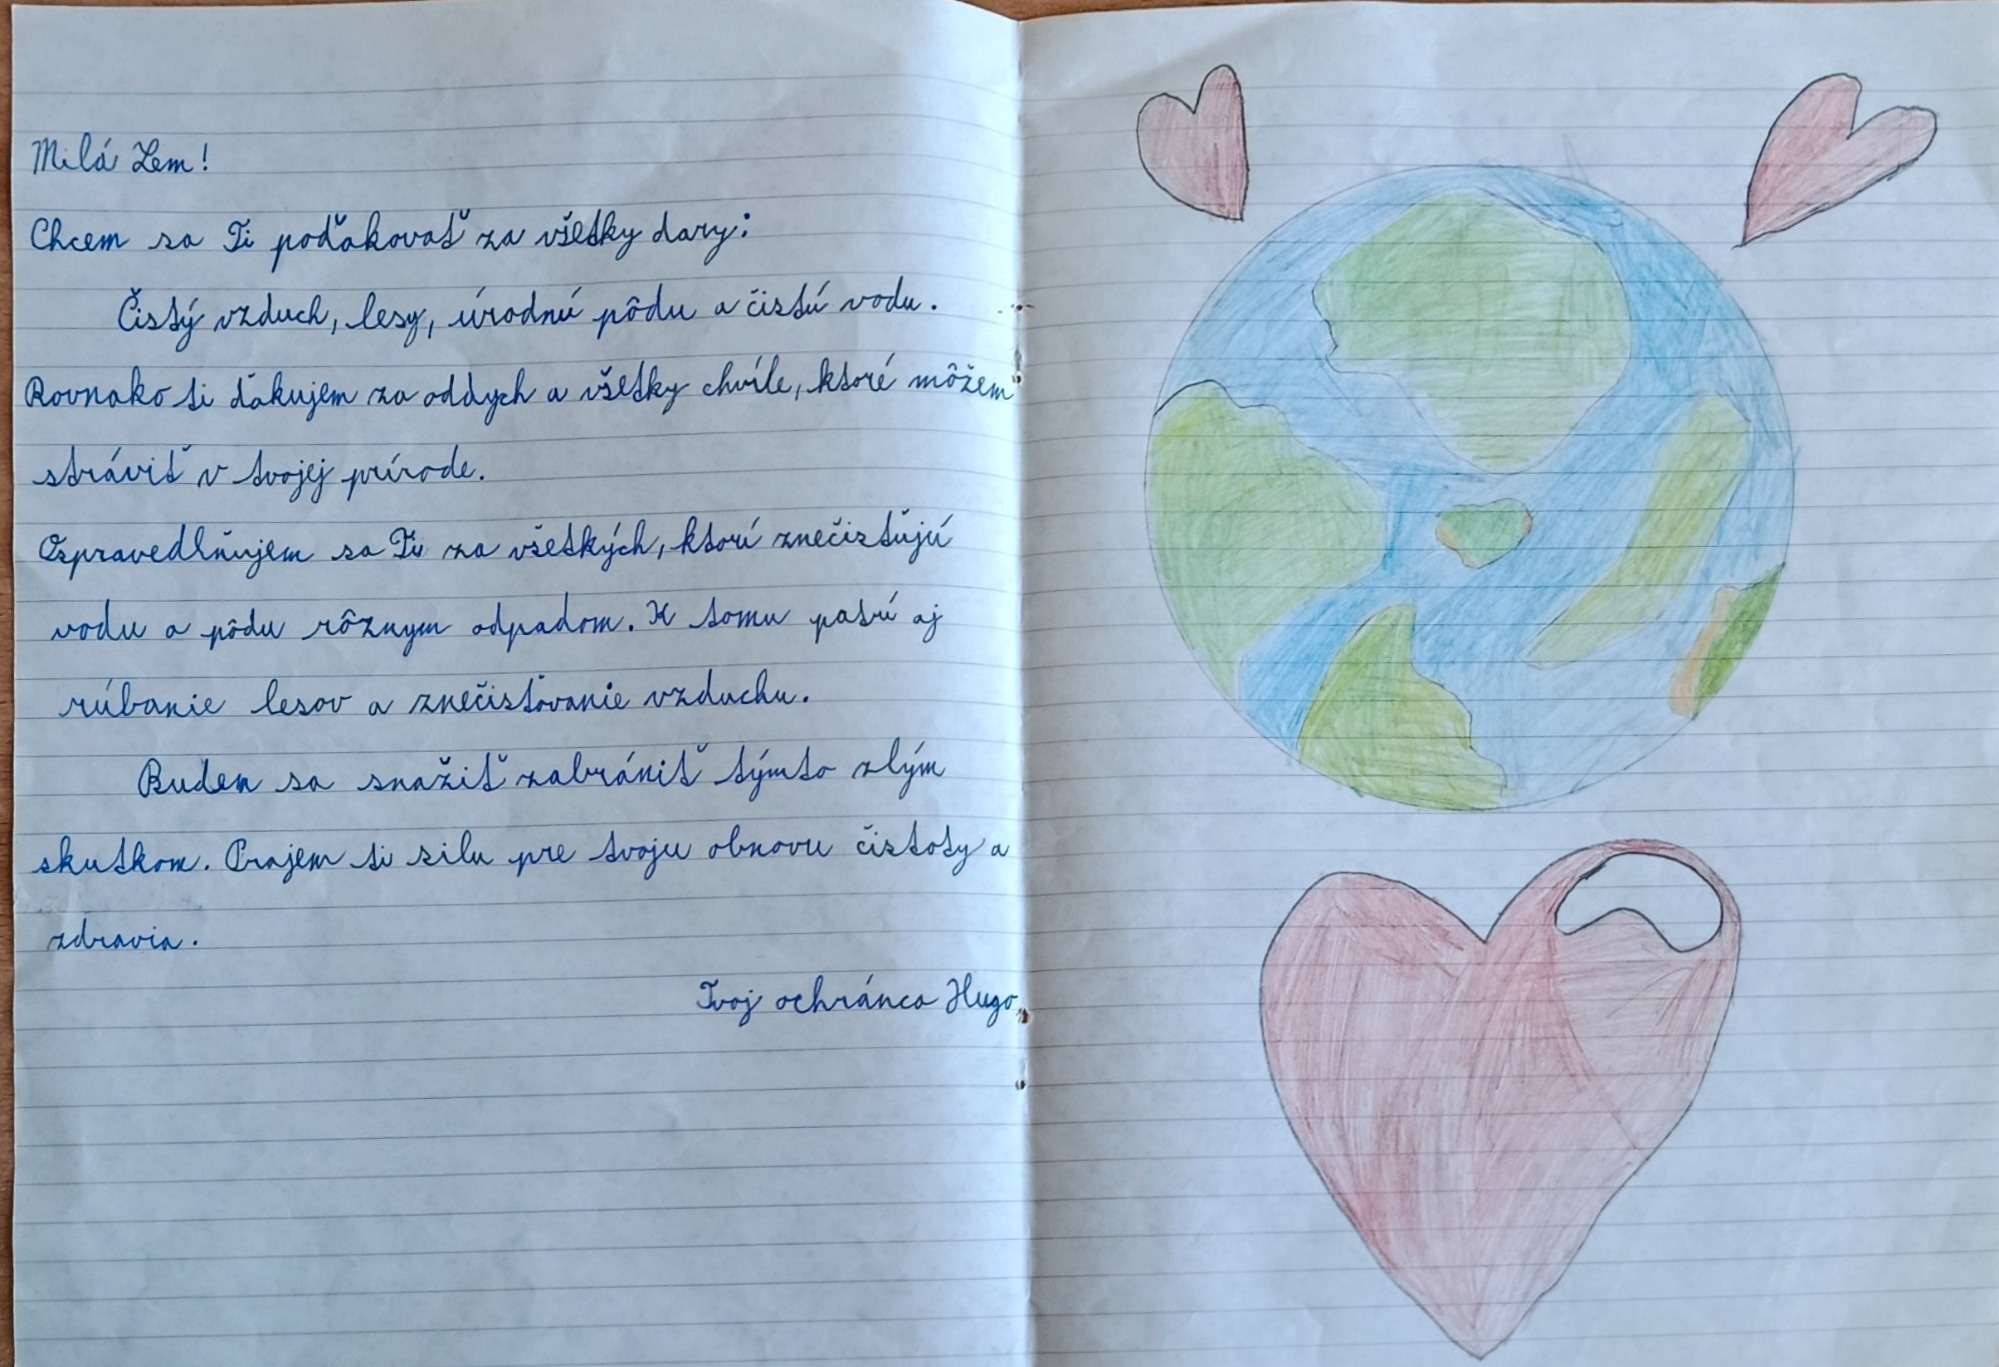 Milá Zem!
Chcem sa Ti poďakovať za všetky dary:
Čistý vzduch, lesy, úrodnú pôdu a čistú vodu.
Rovnako ti ďakujem za oddych a všetky chvíle, ktoré môžem
stráviť v tvojej prírode.
Ospravedlňujem sa Ti za všetkých, ktorí znečisťujú
vodu a pôdu rôznym odpadom. K tomu patrí aj
rúbanie lesov a znečisťovanie vzduchu.
Budem sa snažiť zabrániť týmto zlým
skutkom. Prajem ti silu pre tvoju obnovu čistoty a
zdravia.
Tvoj ochránca Hugo